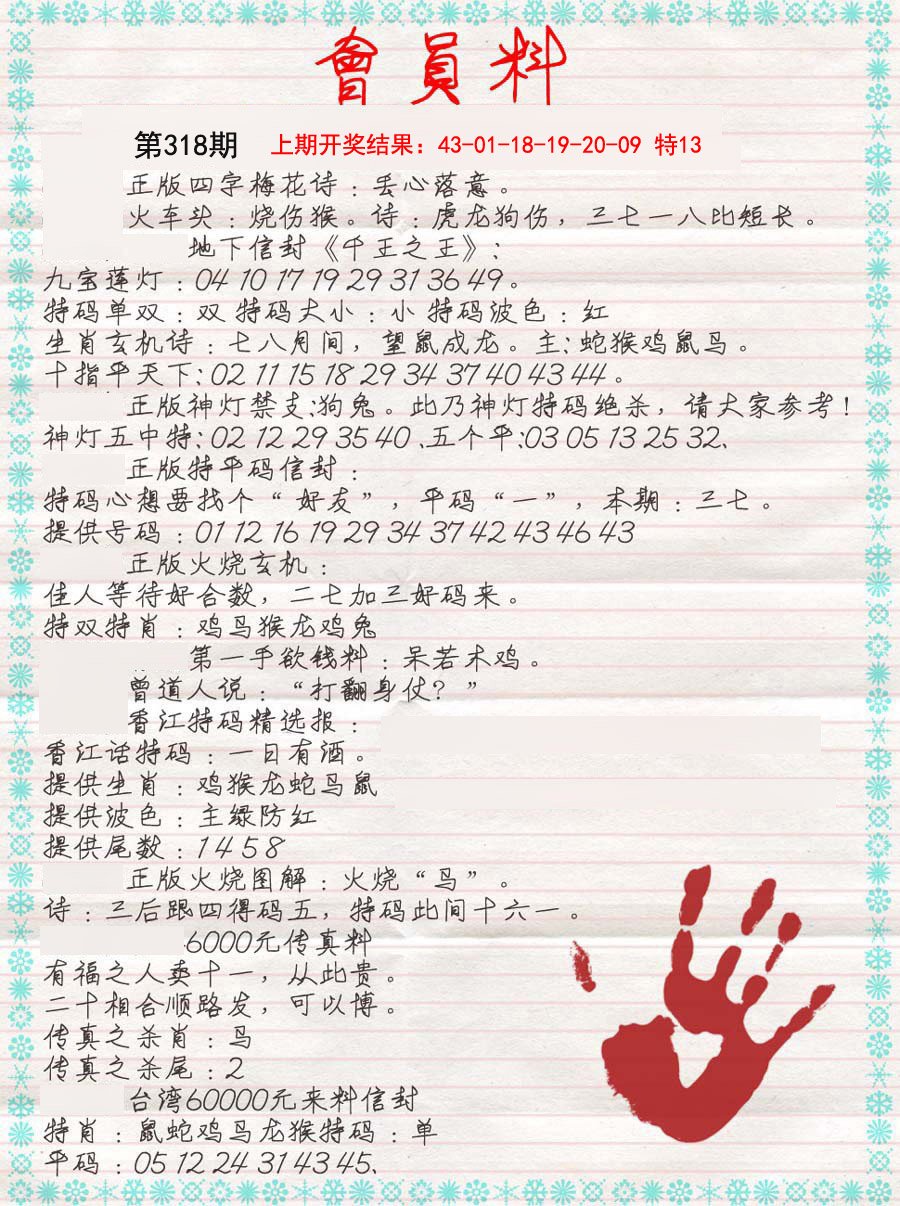 會員料
第318期 上期开奖结果：43-01-18-19-20-09 特13
正版四字梅花诗：丢心落意。
火车头：烧伤猴。诗：虎龙狗伤，三七一八比短长。
地下信封《千王之王》：
九宝莲灯：04 10 17 19 29 31 36 49。
特码单双：双 特码大小：小 特码波色：红
生肖玄机诗：七八月间，望鼠成龙。主：蛇猴鸡鼠马。
十指平天下：02 11 15 18 29 34 37 40 43 44。
正版神灯禁支：狗兔。此乃神灯特码绝杀，请大家参考！
神灯五中特：02 12 29 35 40、五个平：03 05 13 25 32、
正版特平码信封：
特码心想要找个“好友”，平码“一”，本期：三七。
提供号码：01 12 16 19 29 34 37 42 43 46 43
正版火烧玄机：
佳人等待好合数，二七加三好码来。
特双特肖：鸡马猴龙鸡兔
第一手欲钱料：呆若木鸡。
曾道人说：“打翻身仗？”
香江特码精选报：
香江话特码：一日有酒。
提供生肖：鸡猴龙蛇马鼠
提供波色：主绿防红
提供尾数：1 4 5 8
正版火烧图解：火烧“马”。
诗：三后跟四得码五，特码此间十六一。
6000元传真料
有福之人卖十一，从此贵。
二十相合顺路发，可以博。
传真之杀肖：马
传真之杀尾：2
台湾60000元来料信封
特肖：鼠蛇鸡马龙猴特码：单
平码：05 12 24 31 43 45、